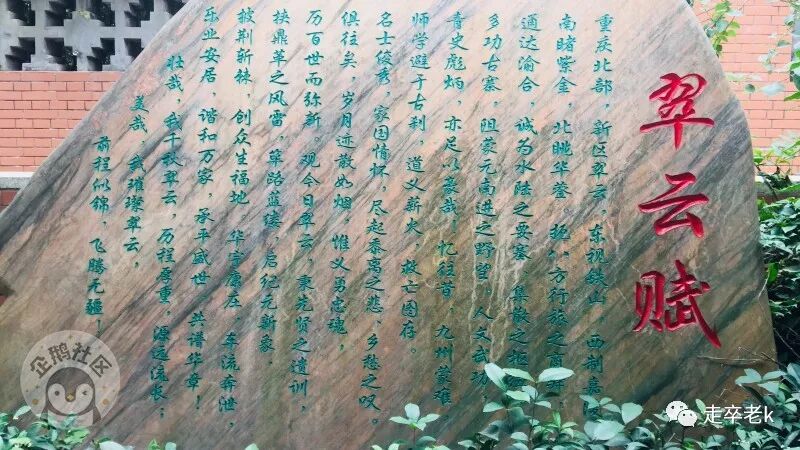 翠云赋
重庆北部，新区翠云，东视铁山，西制嘉
南睹紫金，北眺华蓥，扼八方行旅之
通达渝合，诚为水陆之要塞，集散之枢
多功古寨，阻蒙元南进之野望，人文武功，
青史彪炳，亦足以豪哉，忆往昔，九州蒙难
师学避于古刹，道义薪火，救亡图存。
名士俊秀，家国情怀，尽起黍离之悲、乡愁之叹。
俱往矣，岁月迹散如烟，惟义勇忠魂，
历百世而弥新。观今日翠云，秉先贤之遗训，
挟鼎革之风雷，筚路蓝缕，启纪元新象，
披荆斩棘，创众生福地，华宇康庄，车流奔泄，
乐业安居，谐和万家，承平盛世，共谱华章！
壮哉，我千秋翠云，历程厚重，源远流长；
美哉，我璀璨翠云，
前程似锦，飞腾无疆！
企鹅社区
走卒老k